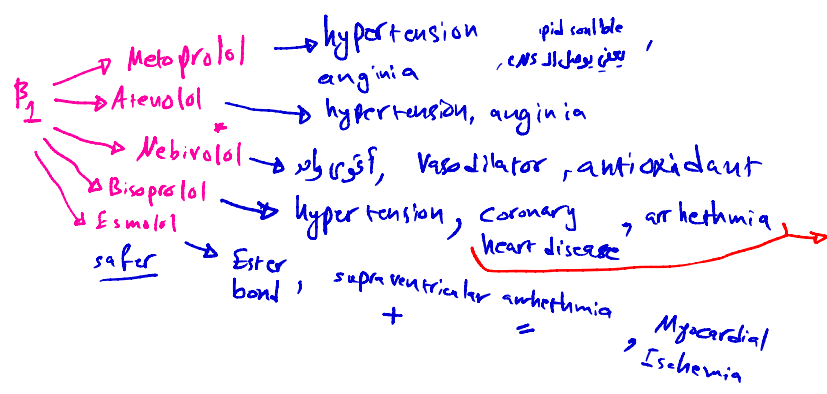 B1
Metoprolol → hypertension anginia, ipid soulble يعني يوصل الـ CNS,
Atenolol → hypertension, anginia
Nebivolol* → أقوى واحد, Vasodilator, antioxidant
Bisoprolol → hypertension, coronary heart disease, arrhethmia
Esmolol → Ester bond, supraventricular arrhethmia, Myocardial Ischemia
safer
+
=